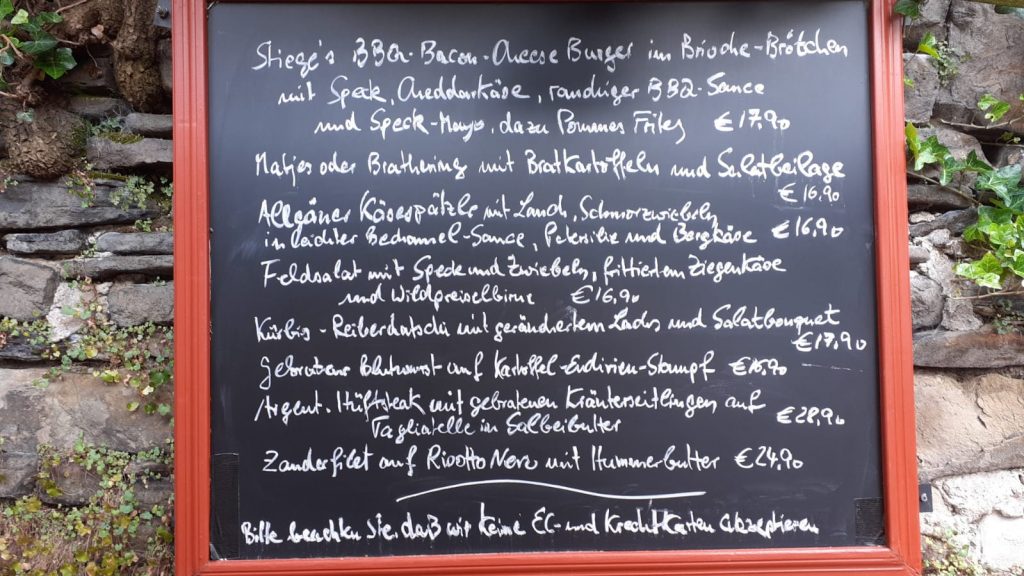 Stiege's BBQ-Bacon-Cheese Burger im Brioche-Brötchen
mit Speck, Cheddarkäse, rauchiger BBQ-Sauce
und Speck-Mayo, dazu Pommes Frites €17,90
Matjes oder Brathering mit Bratkartoffeln und Salatbeilage
€16,90
Allgäuer Käsespätzle mit Lauch, Schmorzwiebeln
in leichter Bechamel-Sauce, Petersilie und Bergkäse €16,90
Feldsalat mit Speck und Zwiebeln, frittiertem Ziegenkäse
und Wildpreiselbirne €16,90
Kürbis-Reiberdatschi mit geräuchertem Lachs und Salatbouquet
€17,90
Gebratene Blutwurst auf Kartoffel-Endivien-Stampf €16,90
Argent. Hüftsteak mit gebratenen Kräuterseitlingen auf
Tagliatelle in Salbeibutter €28,90
Zanderfilet auf Risotto Nero mit Hummerbutter €24,90
Bitte beachten Sie, daß wir keine EC- und Kreditkarten akzeptieren